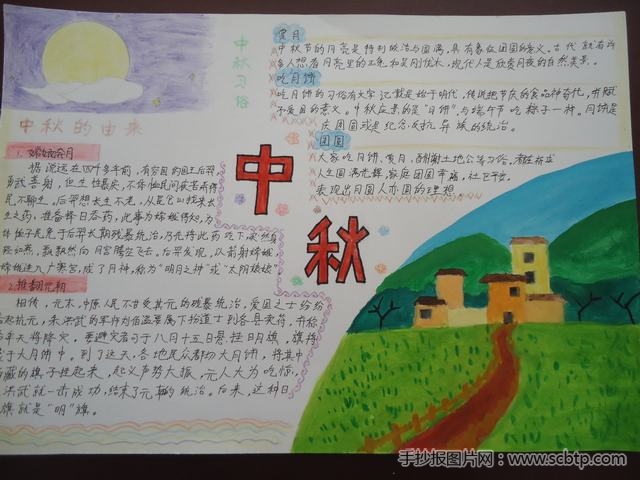 中秋的由来
1. 嫦娥奔月
据说远在四千多年前，有穷国的国王后羿
勇武善射，但生性暴戾，不体恤民间疾苦
民不聊生。后羿想长生不老，从昆仑山找来长
生之药，准备择日吞药，此事为嫦娥得知，为
体恤子民免于后羿长期残暴统治，乃先将此药吃下
轻如燕，飘飘然向月宫腾空飞去。后羿发现，以箭射嫦娥，
嫦娥进入广寒宫，成了月神，称为“明月之神”或“太阴娘娘”
2. 推翻元朝
相传，元末，中原人民不甘受其元的残暴统治，爱国之士纷纷
起抗元，朱洪武的军师刘伯温要属下扮道士到各县卖符，并称
天将降灾，要避灾者可于八月十五日悬挂明旗，旗将
于大月饼中，到了这天，各地民众都切大月饼，将其中
藏的旗子挂起来，起义声势大振，元人大为吃惊，
洪武就一击成功，结束了元朝的统治。后来，这种日
旗就是“明”旗。
中秋习俗
赏月
中秋节的月亮是特别皎洁与圆满，具有象征团圆的意义。古代就有许
多人想看月亮里的玉兔和吴刚伐木，现代人是欣赏月夜的自然美景。
吃月饼
吃月饼的习俗有文字记载是始于明代，传说把节庆的食品神奇化，并赋
予爱国的意义。中秋应景的是“月饼”，与端午节吃粽子一样。月饼是
庆团圆或是纪念反抗异族的统治。
团圆
大家吃月饼、赏月、酬谢土地公等习俗，都在祈求
人生圆满光辉，家庭团圆幸福，社卫平安
表现出月圆人亦圆的理想。
中秋
手抄报图片网：www.scbtp.com